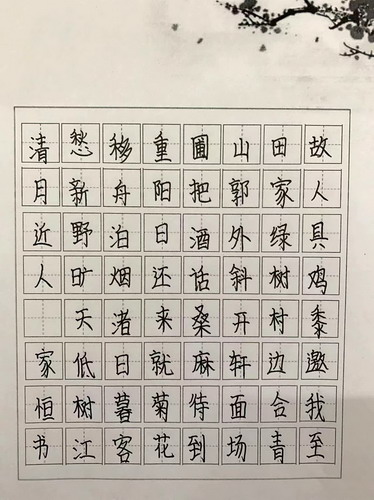 故人具鸡黍邀我至
田家绿树村边合青
山郭外斜开轩面场
圃把酒话桑麻待到
重阳日还来就菊花
移舟泊烟渚日暮客
愁新野旷天低树江
清月近人 家恒书